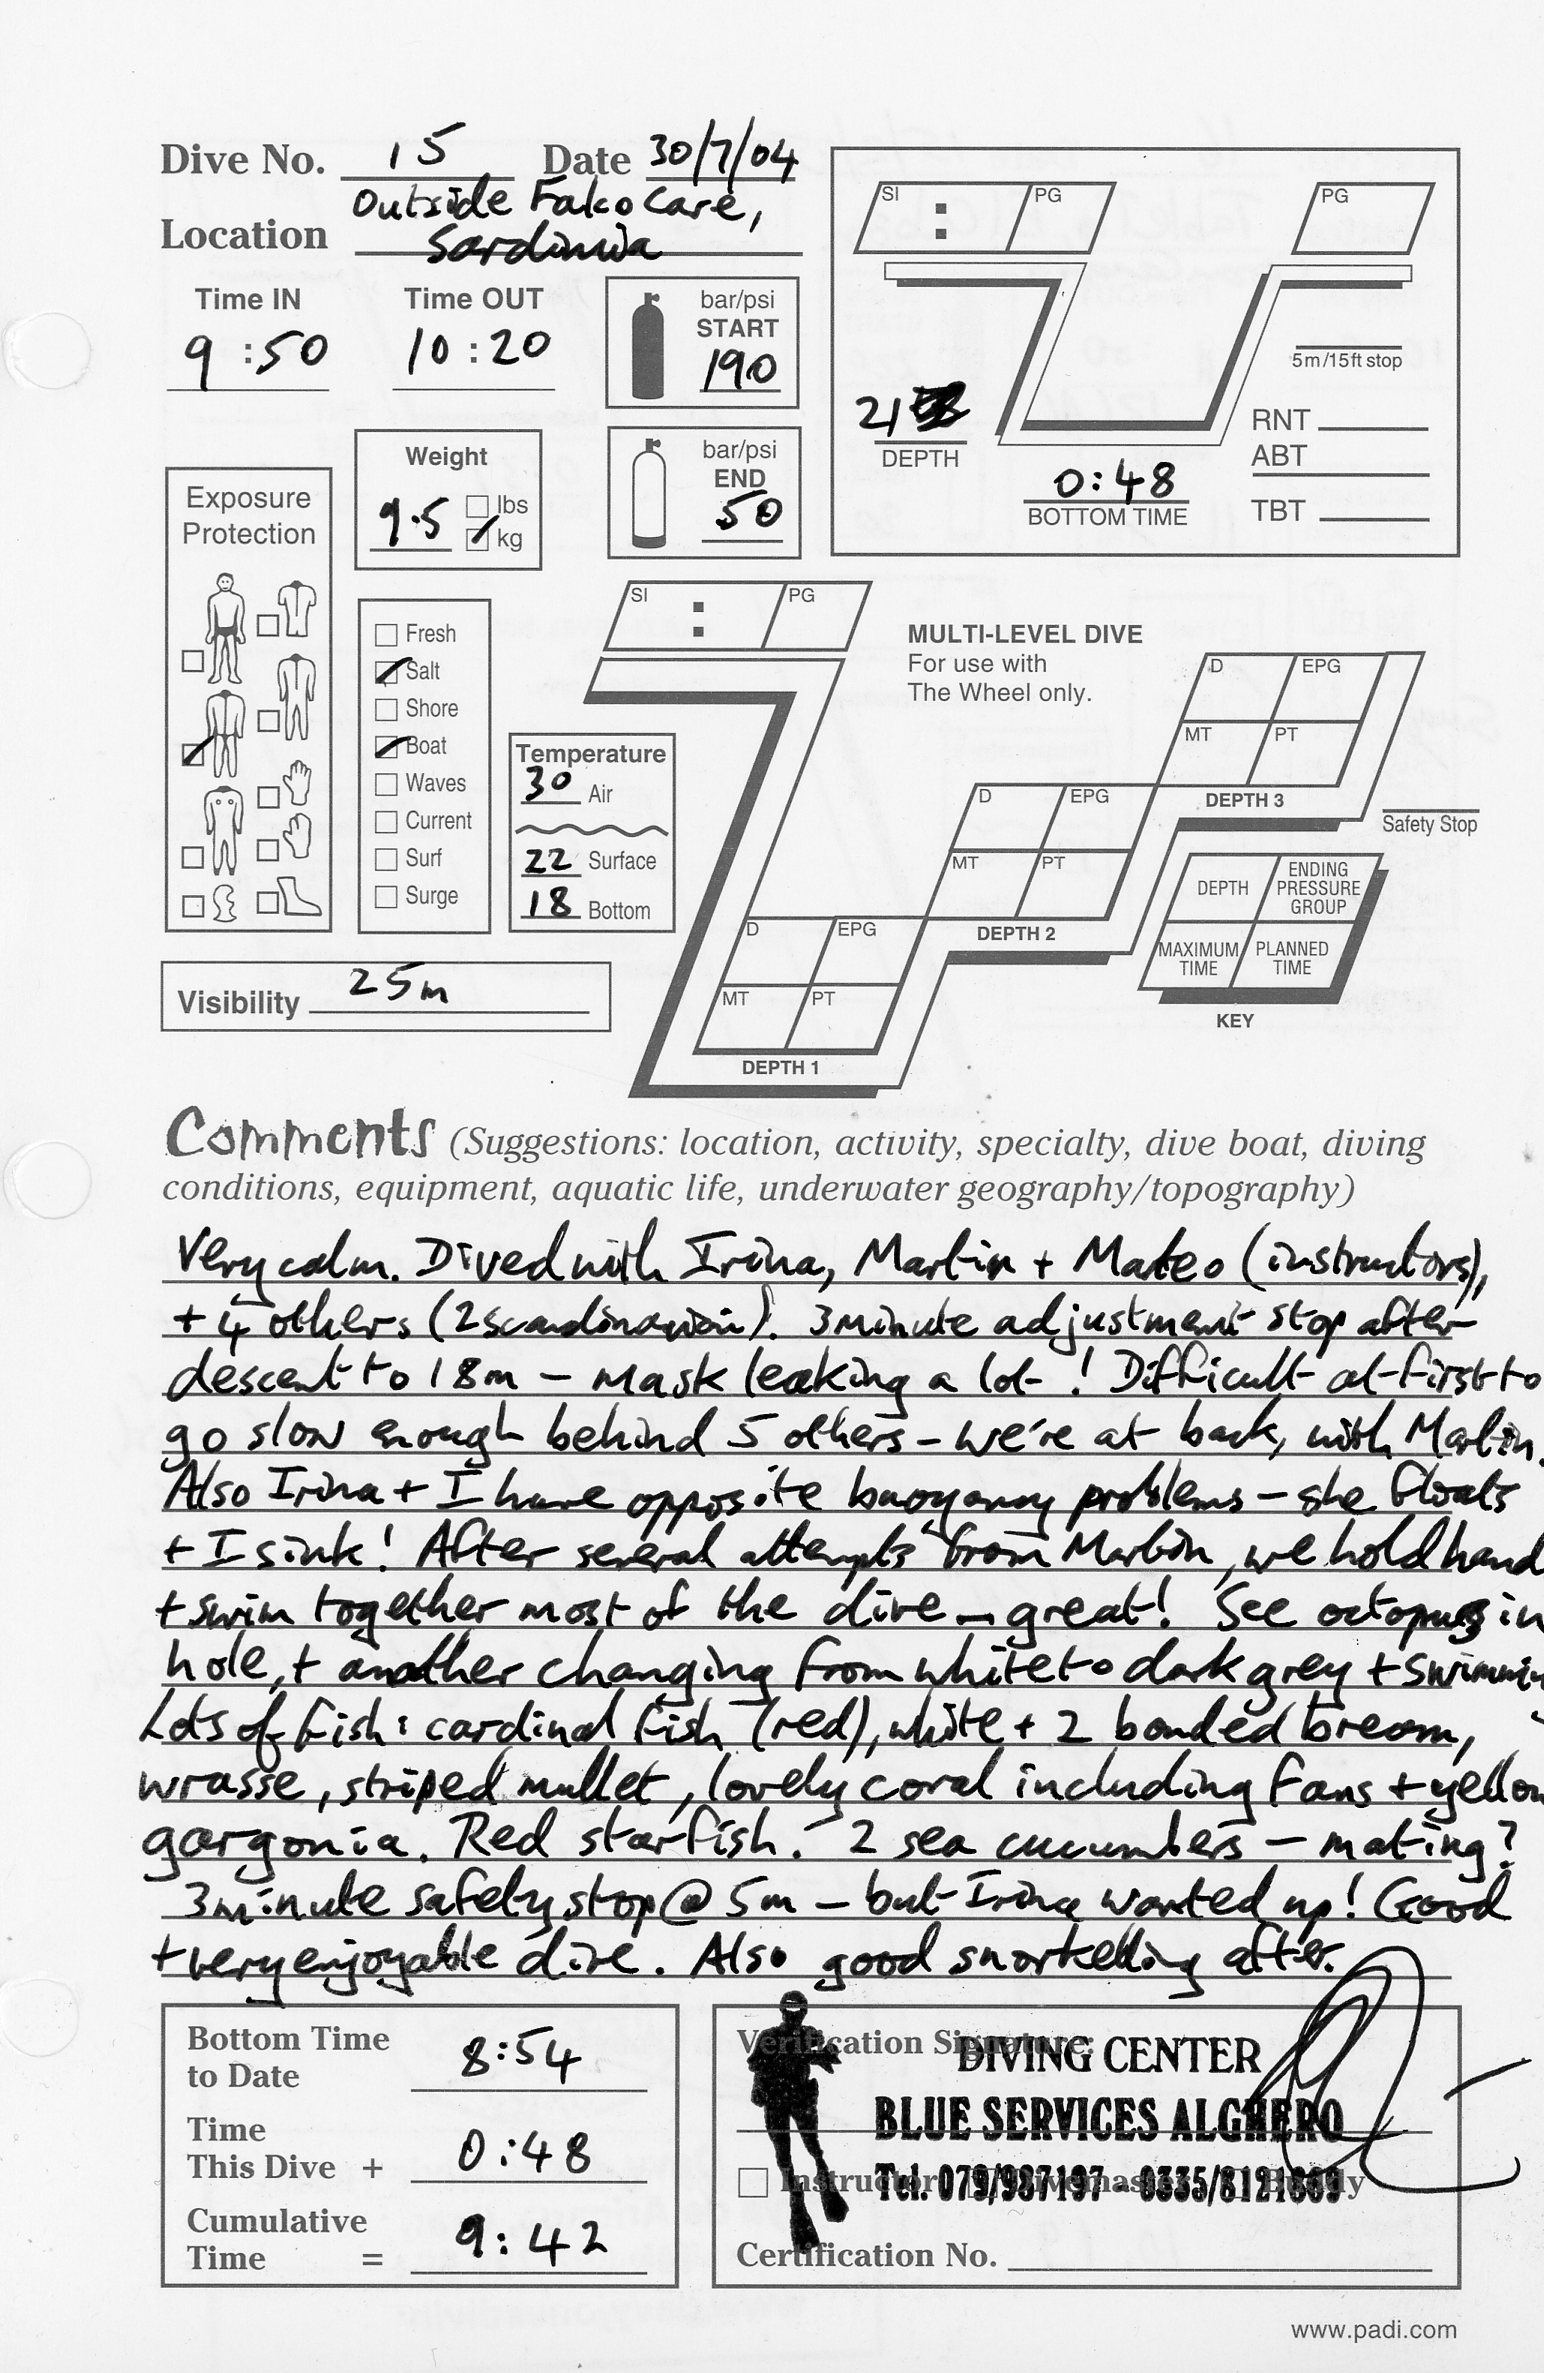 Dive No. 15 Date 30/7/04
Outside Falco Care,
Location Sardinia
Time IN Time OUT
9:50 10:20
bar/psi
START
190
bar/psi
END
50
Weight
9.5 lbs
kg
Exposure
Protection
Fresh
Salt
Shore
Boat
Waves
Current
Surf
Surge
Temperature
30 Air
22 Surface
18 Bottom
Visibility 25m
SI : PG PG
5m/15ft stop
21
DEPTH
0:48
BOTTOM TIME
RNT
ABT
TBT
SI : PG
MULTI-LEVEL DIVE
For use with
The Wheel only.
D EPG
MT PT
DEPTH 3
Safety Stop
D EPG
MT PT
DEPTH 2
D EPG
MT PT
DEPTH 1
DEPTH ENDING PRESSURE GROUP
MAXIMUM TIME PLANNED TIME
KEY
Comments (Suggestions: location, activity, specialty, dive boat, diving
conditions, equipment, aquatic life, underwater geography/topography)
Very calm. Dived with Irina, Martin + Mateo (instructors),
+ 4 others (2 scandinavian). 3 minute adjustment stop after
descent to 18m – mask leaking a lot! Difficult at first to
go slow enough behind 5 others – we're at back, with Martin.
Also Irina + I have opposite buoyancy problems – she floats
+ I sink! After several attempts from Martin, we hold hand
+ swim together most of the dive – great! See octopus in
hole, + another changing from white to dark grey + swimming
Lots of fish: cardinal fish (red), white + 2 banded bream,
wrasse, striped mullet, lovely coral including fans + yellow
gorgonia. Red starfish. 2 sea cucumbers – mating?
3 minute safety stop @ 5m – but Irina wanted up! Good
+ very enjoyable dive. Also good snorkelling after.
Bottom Time
to Date 8:54
Time
This Dive + 0:48
Cumulative
Time = 9:42
Verification Signature:
DIVING CENTER
BLUE SERVICES ALGHERO
Instructor Divemaster Buddy
Tel. 079/987197 - 0335/8121669
Certification No.
www.padi.com